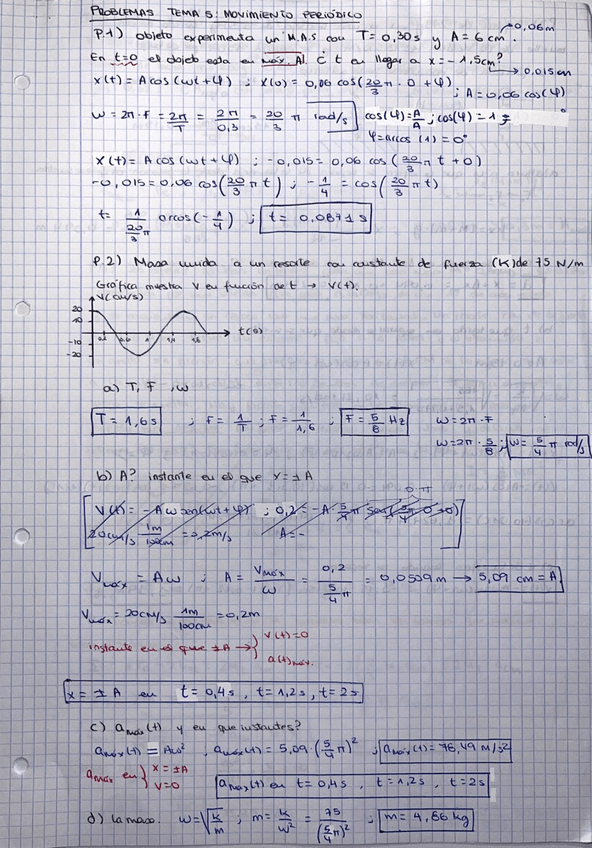 PROBLEMAS TEMA 5: MOVIMIENTO PERIÓDICO
P.1) objeto experimenta un M.A.S con T=0,30s y A=6cm. → 0,06m
En t=0 el objeto esta en máx. A. ¿ t en llegar a x=-1,5cm? → 0,015cm
x(t)=A cos(ωt+φ) ; x(0)=0,06 cos(20/3 π · 0 + φ) ; A=0,06 cos(φ)
ω = 2π·f = 2π/T = 2π/0,3 = 20/3 π rad/s cos(φ)=A/A ; cos(φ)=1 ;
φ=arcos(1)=0°
x(t)=A cos(ωt+φ) ; -0,015=0,06 cos(20/3 π t + 0)
-0,015=0,06 cos(20/3 π t) ; -1/4 = cos(20/3 π t)
t= 1/(20/3 π) arcos(-1/4) ; t=0,0871s
P.2) Masa unida a un resorte con constante de fuerza (K) de 75 N/m
Gráfica muestra V en función de t → V(t).
V(cm/s)
20
10
-10
-20
t(s)
a) T, F, ω
T=1,6s ; f=1/T ; f=1/1,6 ; F=5/8 Hz ω=2π·F
ω=2π·5/8 ; ω=5/4 π rad/s
b) A? instante en el que x=±A
0·π
V(t)=-Aω sen(ωt+φ) ; 0,2=-A 5/4 π sen(5/4 π·0+0)
20cm/s 1m/100cm =0,2m/s A=-
Vmáx = Aω ; A = Vmáx/ω = 0,2/(5/4 π) = 0,0509m → 5,09 cm=A
Vmáx=20cm/s 1m/100cm =0,2m
instante en el que ±A → { V(t)=0
a(t)máx.
x=±A en t=0,4s, t=1,2s, t=2s
c) amáx(t) y en que instantes?
amáx(t)=Aω² , amáx(t)=5,09·(5/4 π)² ; amáx(t)=78,49 m/s²
amáx en { x=±A
V=0
amáx(t) en t=0,4s, t=1,2s, t=2s
d) la masa. ω=√(K/m) ; m=K/ω² = 75/(5/4 π)² ; m=4,86 kg